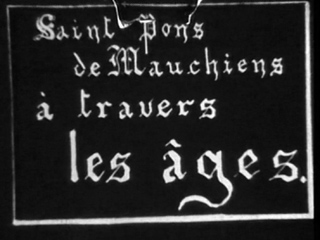 Saint Pons
de Mauchiens
à travers
les âges.